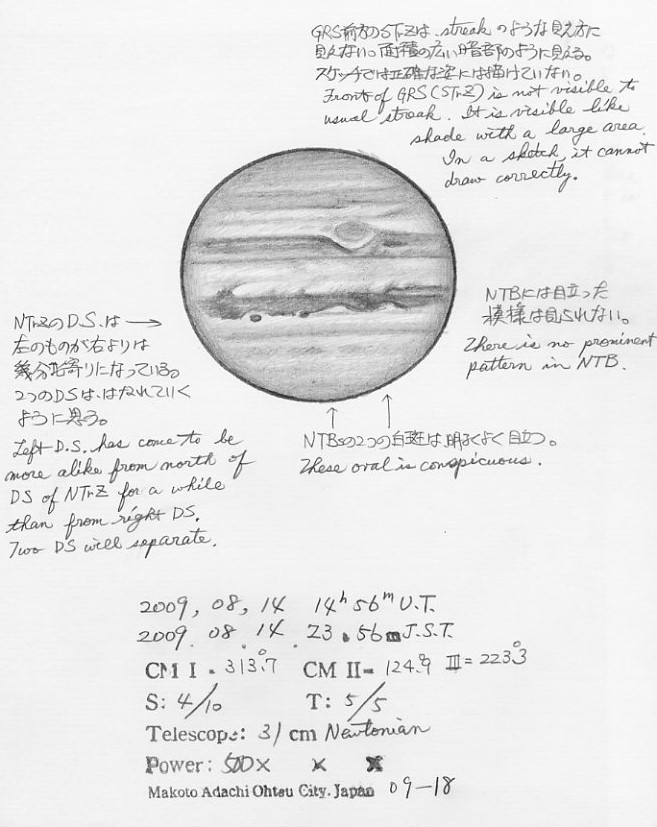 GRS前方のSTrZは、streakのような見え方に
見えない。面積の広い暗部のように見える。
スケッチでは正確な姿には描けていない。
Front of GRS (STrZ) is not visible to
usual streak. It is visible like
shade with a large area.
In a sketch, it cannot
draw correctly.
NTBには目立った
模様は見られない。
There is no prominent
pattern in NTB.
NTrZのD.S.は →
左のものが右よりは
幾分北寄りになっている。
2つのDSは、はなれていく
ように思う。
Left D.S. has come to be
more alike from north of
DS of NTrZ for a while
than from right DS.
Two DS will separate.
NTBsの2つの白斑は明るくよく目立つ。
These oral is conspicuous.
2009, 08, 14 14h 56m U.T.
2009. 08. 14. 23. 56m J.S.T.
CM I = 313.°7 CM II = 124.°9 III = 223.°3
S: 4/10 T: 5/5
Telescope: 31 cm Newtonian
Power: 500× × ×
Makoto Adachi Ohtsu City. Japan 09-18